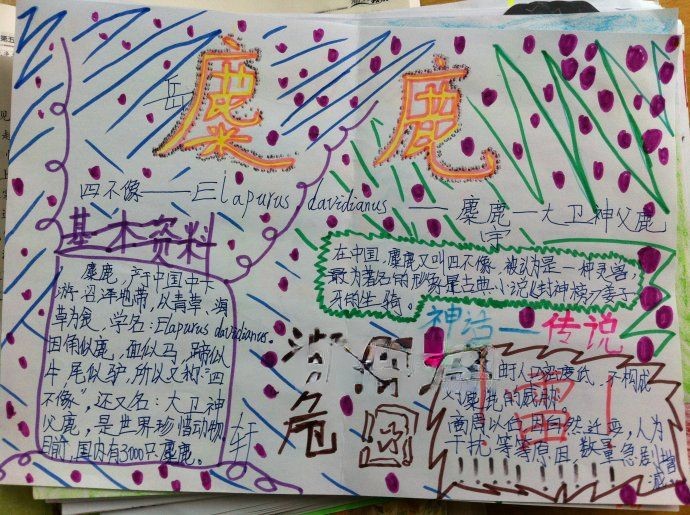 麋鹿
岳
四不像——Elapurus davidianus — 麋鹿—大卫神父鹿
宗
基本资料
麋鹿,产于中国中下
游沼泽地带,以青草、海
草为食,学名:Elapurus davidianus.
因角似鹿,面似马,蹄似
牛,尾似驴,所以又称“四
不像”,还又名:大卫神
父鹿,是世界珍惜动物
目前,国内有3000只麋鹿。
轩
在中国,麋鹿又叫四不像,被认为是一种灵兽,
最为著名的形象是古典小说《封神榜》姜子
牙的坐骑。
神话—传说
危
由于人口密度低,不构成
对麋鹿的威胁。
商周以后,因自然变迁,人为
干扰,等等原因,数量急剧
减